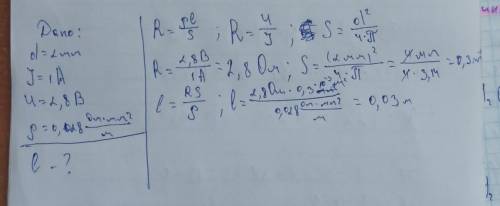 Дано:
d = 2мм
I = 1A
U = 2,8 В
ρ = 0,028 Ом·мм²/м
l - ?
R = ρl/S ; R = U/I ; S = d²/4·П
R = 2,8В/1A = 2,8 Ом ; S = (2мм)²/4·П = 4мм/4·3,14 = 0,3м²
l = RS/ρ ; l = 2,8Ом · 0,3 / 0,028 Ом·мм²/м = 0,03м